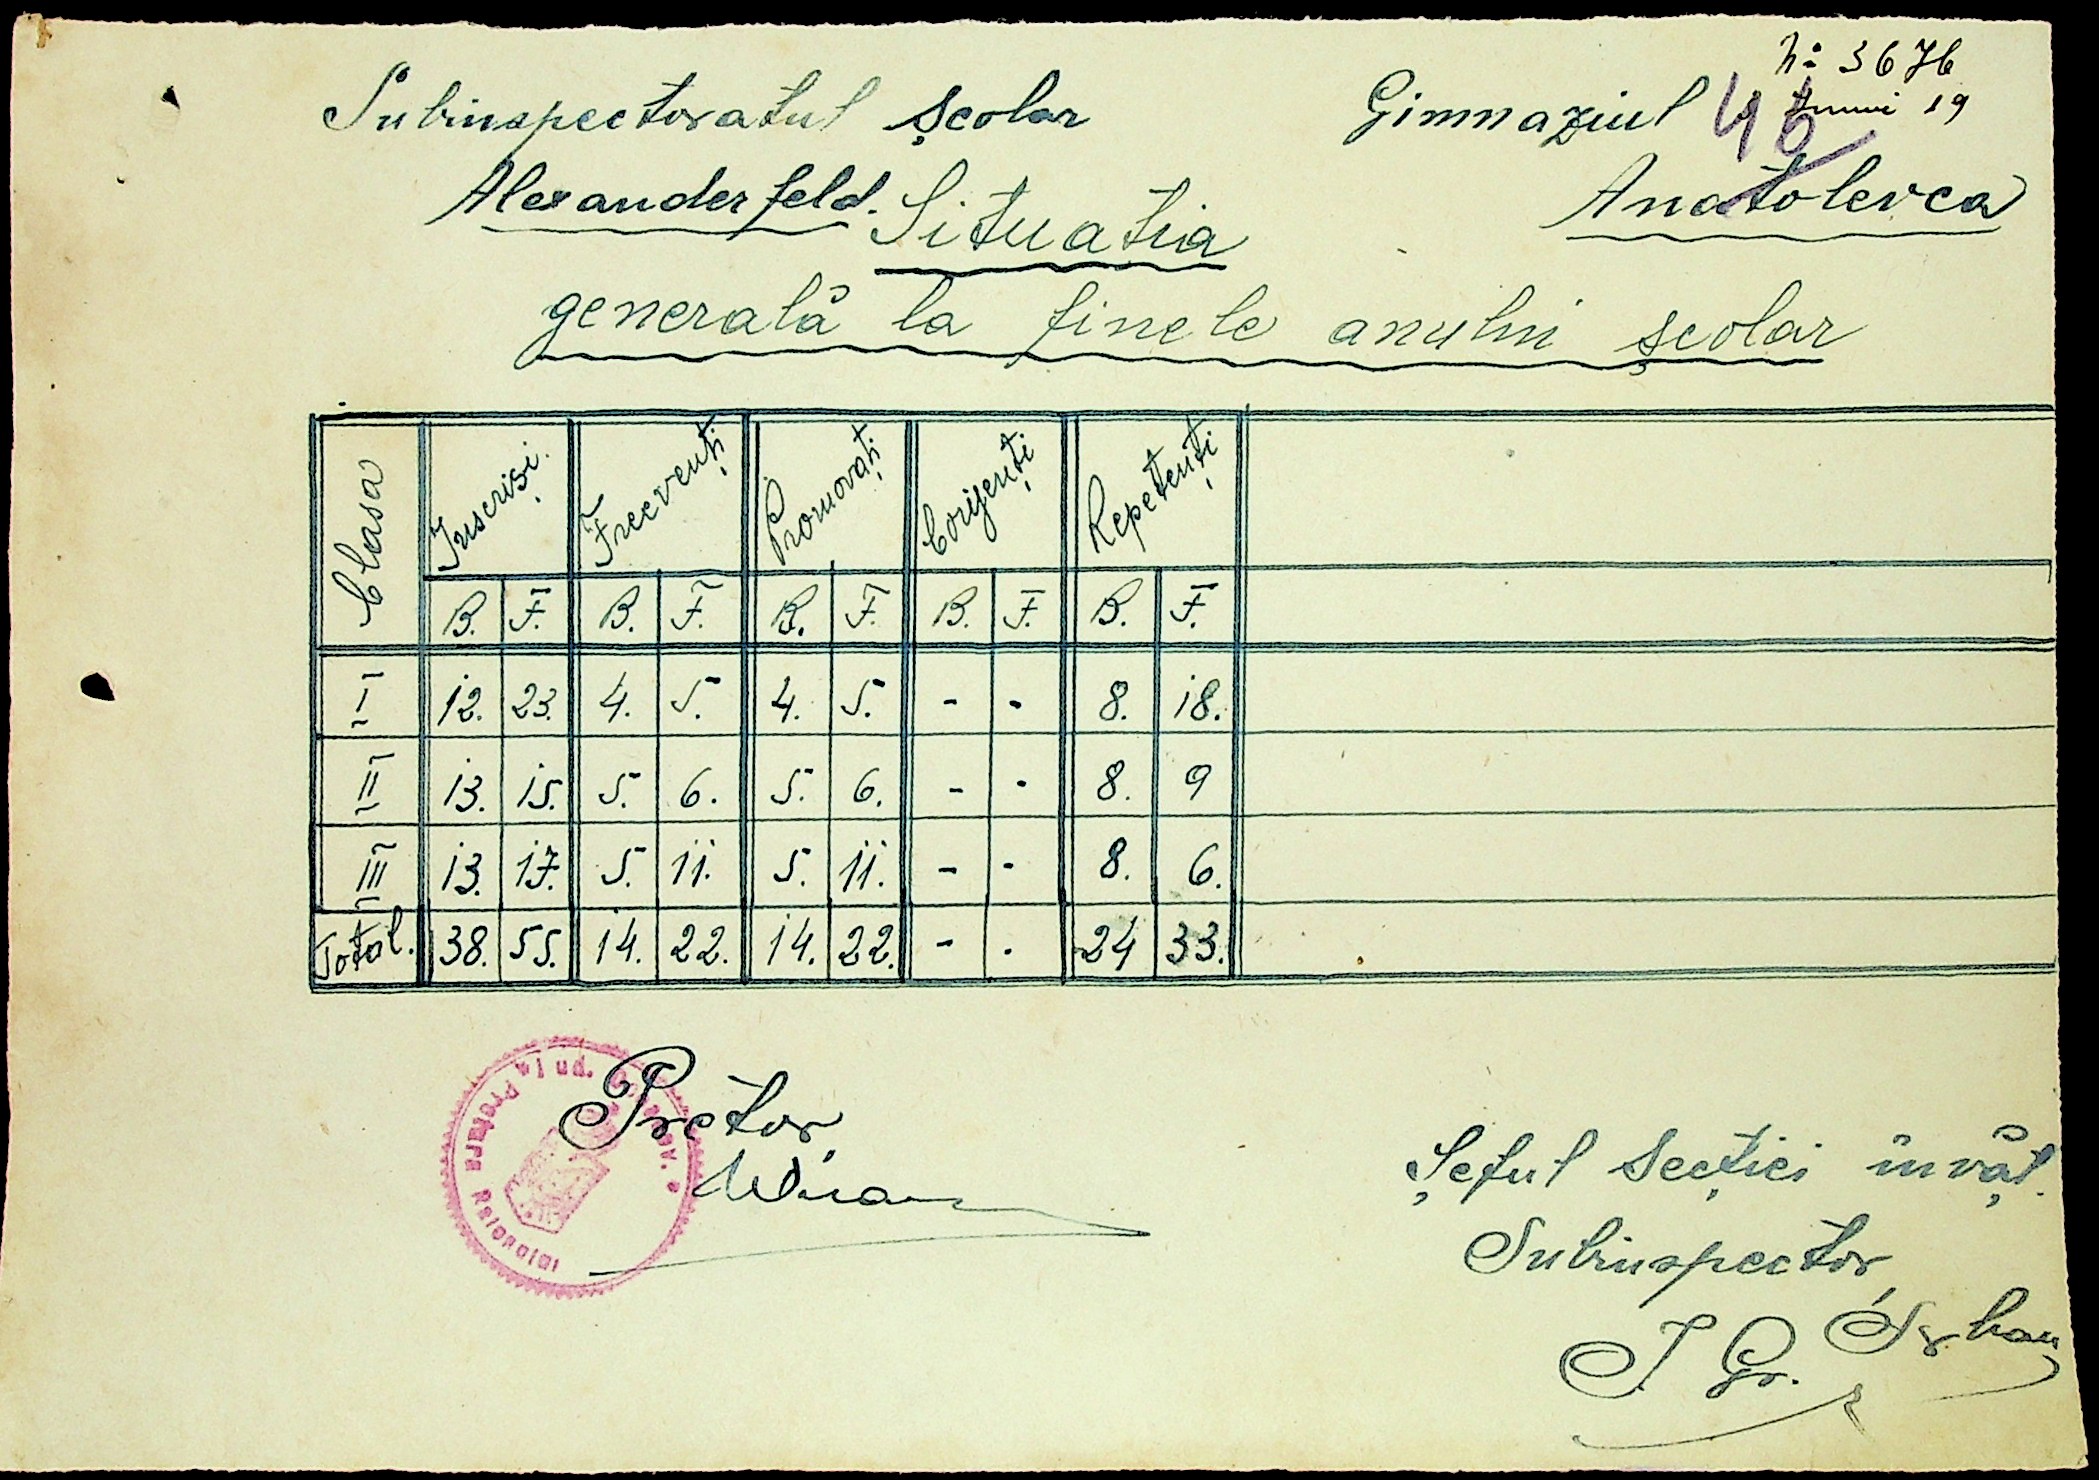 Nº 3676
Subinspectoratul școlar Gimnaziul
Iunui 19
46
Alexanderfeld. Anatolevca
Situatia
generală la finele anului școlar
Clasa Inscriși. Frecvenți Promovați Corijenți Repetenți
B. F. B. F. B. F. B. F. B. F.
I 12. 23. 4. 5. 4. 5. - - 8. 18.
II 13. 15. 5. 6. 5. 6. - - 8. 9
III 13. 17. 5. 11. 5. 11. - - 8. 6.
Total. 38. 55. 14. 22. 14. 22. - - 24 33.
Pretor
Pretura Raionului jud.
Șeful Secției învăț.
Subinspector
I Gr.